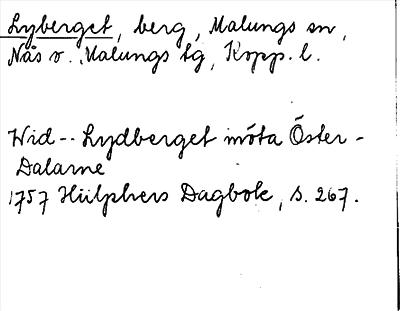 Lyberget, berg, Malungs sn,
Nås o. Malungs tg, Kopp. l.
Wid -- Lydberget möta Öster-
Dalarne
1757 Hülphers Dagbok, s. 267.